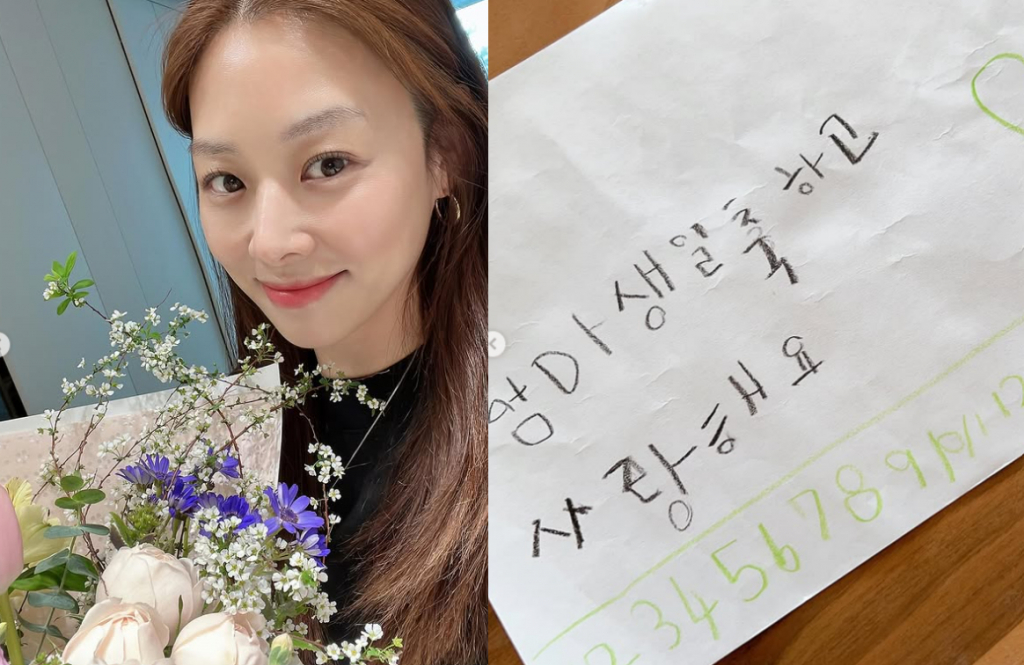 엄마 생일축하고
사랑해요
2 3 4 5 6 7 8 9 10 11 12